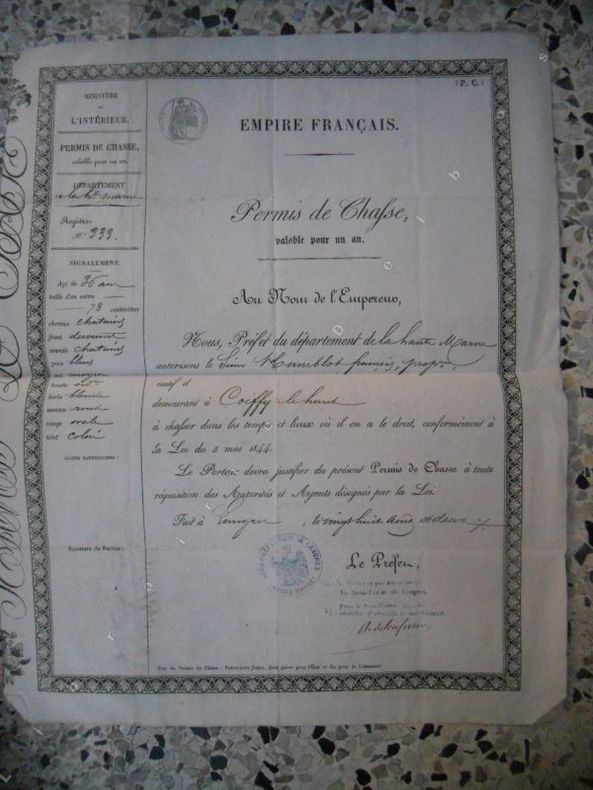 MINISTÈRE
DE
L'INTÉRIEUR.
PERMIS DE CHASSE,
valable pour un an.
DÉPARTEMENT
de la hte marne
Registre
N° 339.
SIGNALEMENT.
Agé de 36 ans
taille d'un mètre
78 centimètres
cheveux chatains
front decouvert
sourcils chatains
yeux bleus
nez moyen
bouche
barbe blonde
menton rond
visage ovale
teint coloré
SIGNES PARTICULIERS :
Signature du Porteur :
(P. C.)
EMPIRE FRANÇAIS.
Permis de Chasse,
valable pour un an.
Au Nom de l'Empereur,
Nous, Préfet du département de la haute Marne
autorisons le Sieur Humblot françois, propre,
natif d
demeurant à Coiffy le haut
à chasser dans les temps et lieux où il en a le droit, conformément à
la Loi du 3 mai 1844.
Le Porteur devra justifier du présent Permis de Chasse à toute
réquisition des Autorités et Agents désignés par la Loi.
Fait à Langres, le vingt huit août
Le Préfet,
Le Sous-Préfet de Langres,
Prix du Permis de Chasse :